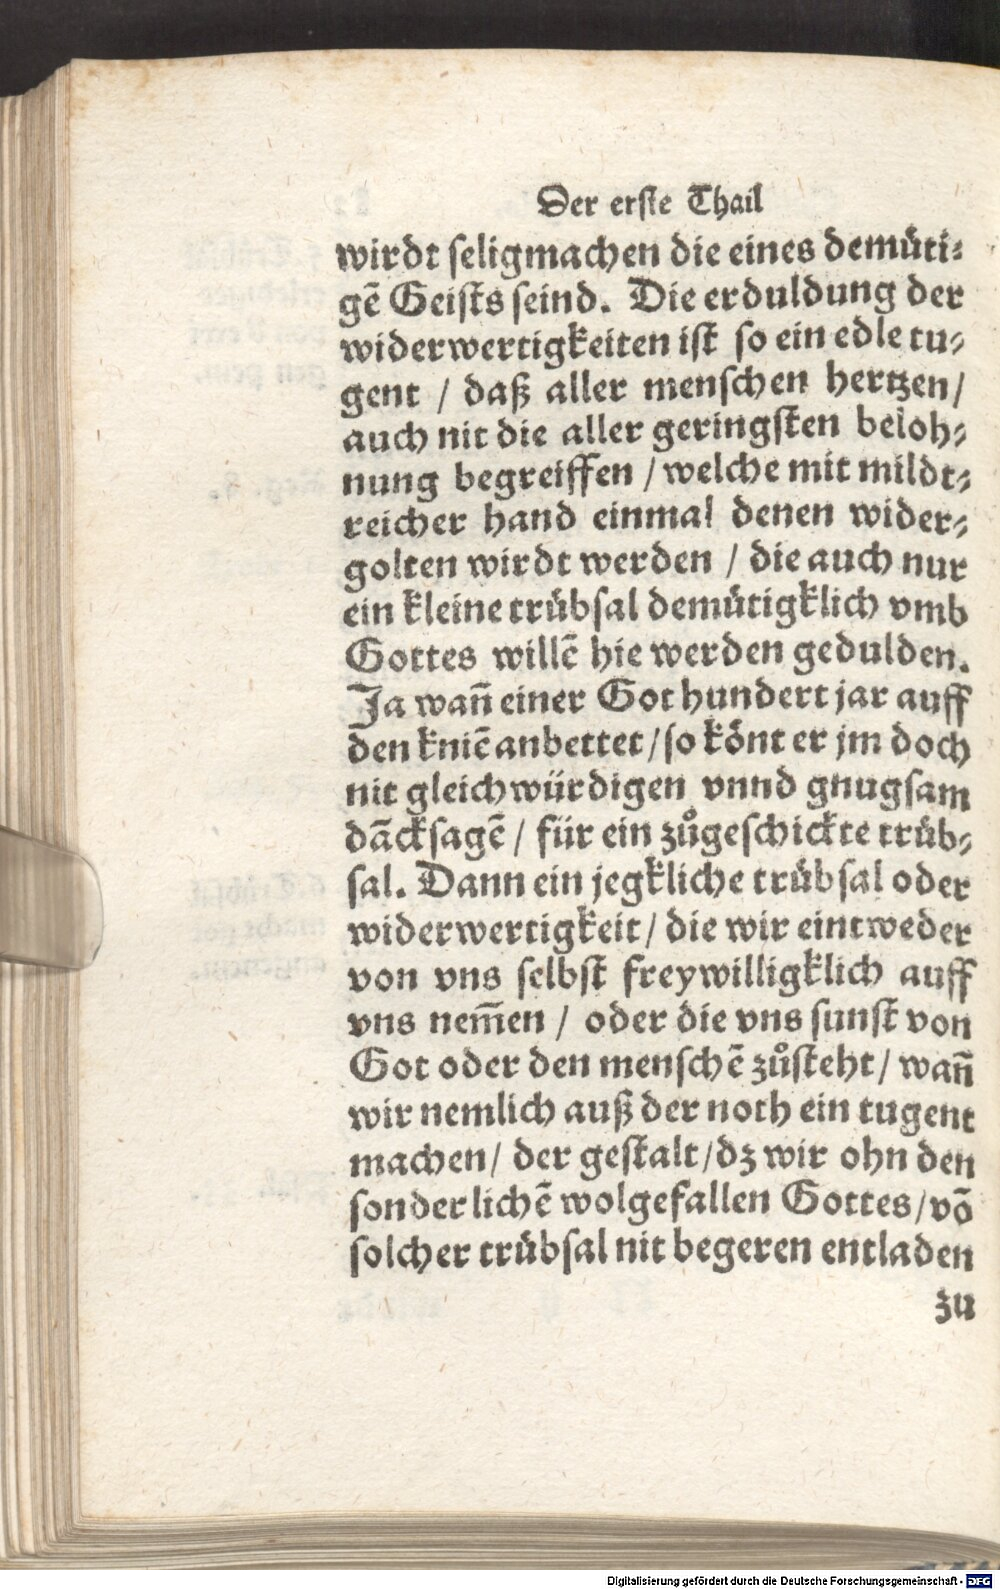 Der erste Thail
wirdt seligmachen die eines demüti⸗
gẽ Geists seind. Die erduldung der
widerwertigkeiten ist so ein edle tu⸗
gent / daß aller menschen hertzen /
auch nit die aller geringsten beloh⸗
nung begreiffen / welche mit mildt⸗
reicher hand einmal denen wider⸗
golten wirdt werden / die auch nur
ein kleine trübsal demütigklich vmb
Gottes willẽ hie werden gedulden.
Ja wañ einer Got hundert jar auff
den kniẽ anbettet / so könt er jm doch
nit gleichwürdigen vnnd gnugsam
dãcksagẽ / für ein zůgeschickte trüb⸗
sal. Dann ein jegkliche trübsal oder
widerwertigkeit / die wir eintweder
von vns selbst freywilligklich auff
vns nem̃en / oder die vns sunst von
Got oder den menschẽ zůsteht / wañ
wir nemlich auß der noth ein tugent
machen / der gestalt / dz wir ohn den
sonderlichẽ wolgefallen Gottes / võ
solcher trübsal nit begeren entladen
zu
Digitalisierung gefördert durch die Deutsche Forschungsgemeinschaft - DFG